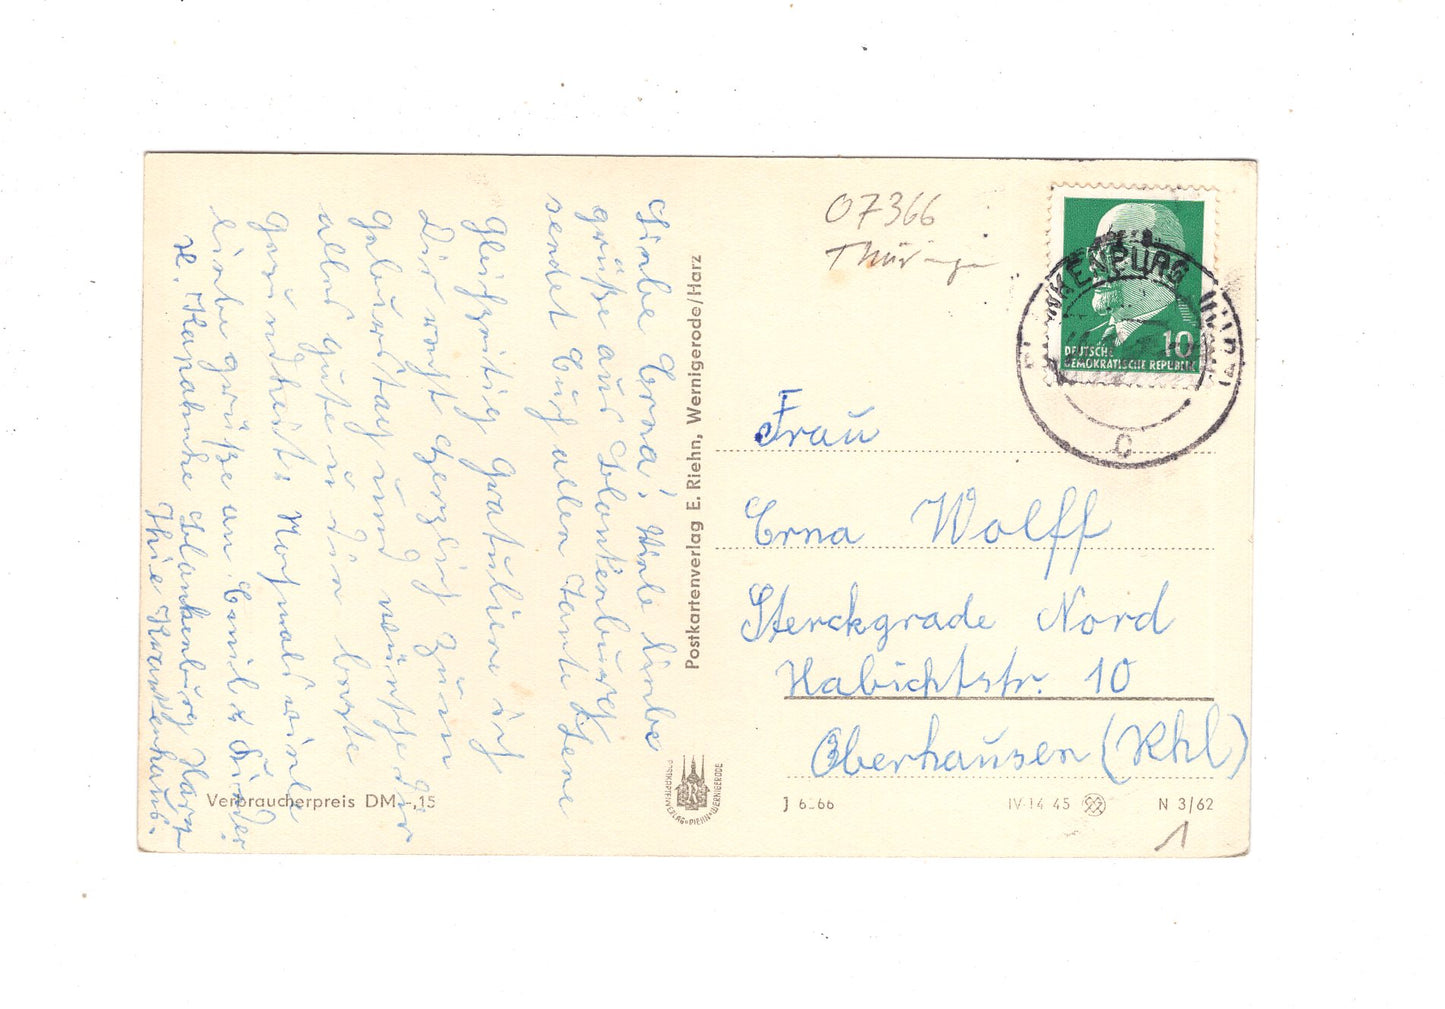 Liebe Erna! Viele liebe
grüße aus Blankenburg
sendet Euch allen Tante Lene
gleichzeitig gratuliere ich
Dir recht herzlich zum
Geburtstag und wünsche dir
alles gute u. die beste
Gesundheit. Nochmals viele
liebe grüße an Emil u. Kinder.
Blankenburg Harz
Thie Krankenhaus.
Postkartenverlag E. Riehn, Wernigerode/Harz
07366
Thüringen
BLANKENBURG (HARZ)
10
DEUTSCHE
DEMOKRATISCHE REPUBLIK
c
Frau
Erna Wolff
Sterckgrade Nord
Habichtstr. 10
Oberhausen (Rhl)
POSTKARTENVERLAG RIEHN WERNIGERODE
Verbraucherpreis DM -,15
IV-14-45
N 3/62
1